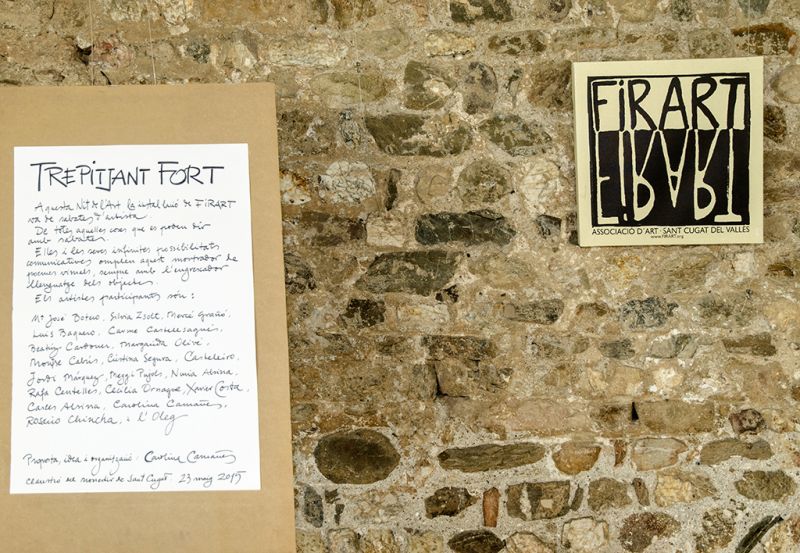 TREPITJANT FORT
Aquesta Nit de l'Art la instal·lació de FIRART
va de sabates d'artista.
De totes aquelles coses que es poden dir
amb sabates.
Elles i les seves infinites possibilitats
comunicatives omplen aquest mostrador de
poemes visuals, sempre amb l'engrescador
llenguatge dels objectes.
Els artistes participants són:
Mª José Botero, Silvia Zsolt, Mercé Grañó,
Luis Baquero, Carme Castellsagués,
Beatriz Cardoner, Margarida Olivé,
Montse Cabús, Cristina Segura, Casteleiro,
Jordi Márquez, Meggi Pujols, Núria Alsina,
Rafa Centelles, Cecilia Donaque, Xavier Costa,
Carles Alsina, Carolina Camañes,
Rosario Chincha, i l'Oleg
Proposta, idea i organització: Carolina Camañes
Claustro del monestir de Sant Cugat. 23 maig 2015
FiRART
FiRART
ASSOCIACIÓ D'ART · SANT CUGAT DEL VALLÈS
www.FIRART.org